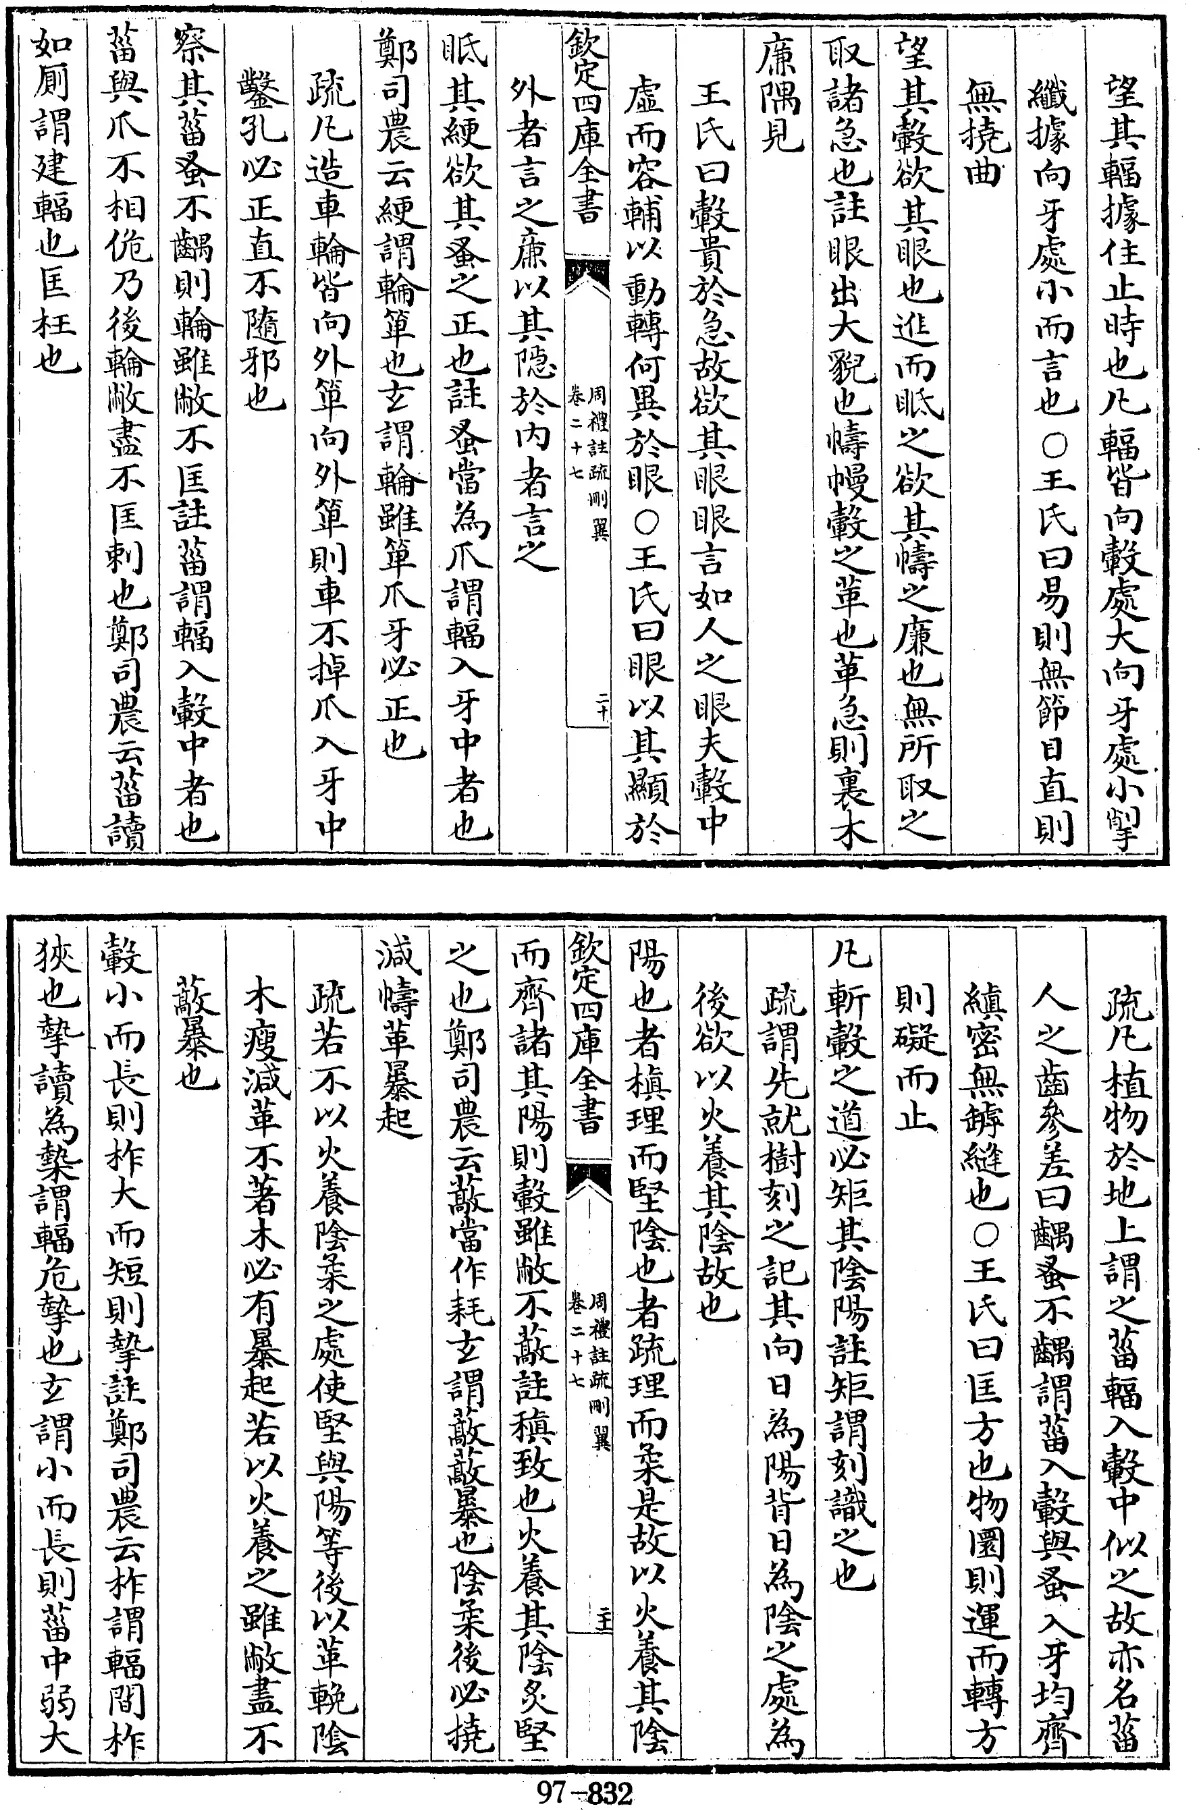 望其輻據住止時也凡輻皆向轂處大向牙處小掣
纖據向牙處小而言也○王氏曰易則無節目直則
無撓曲
望其轂欲其眼也進而眡之欲其幬之廉也無所取之
取諸急也註眼出大貌也幬幔轂之革也革急則裹木
廉隅見
王氏曰轂貴於急故欲其眼眼言如人之眼夫轂中
虛而容輔以動轉何異於眼○王氏曰眼以其顯於
欽定四庫全書
周禮註疏刪翼
卷二十七
二十
外者言之廉以其隱於内者言之
眡其綆欲其蚤之正也註蚤當為爪謂輻入牙中者也
鄭司農云綆謂輪箄也玄謂輪雖箄爪牙必正也
疏凡造車輪皆向外箄向外箄則車不掉爪入牙中
鑿孔必正直不隨邪也
察其菑蚤不齵則輪雖敝不匡註菑謂輻入轂中者也
菑與爪不相佹乃後輪敝盡不匡刺也鄭司農云菑讀
如厠謂建輻也匡枉也
疏凡植物於地上謂之菑輻入轂中似之故亦名菑
人之齒參差曰齵蚤不齵謂菑入轂與蚤入牙均齊
縝密無罅縫也○王氏曰匡方也物圜則運而轉方
則礙而止
凡斬轂之道必矩其陰陽註矩謂刻識之也
疏謂先就樹刻之記其向日為陽背日為陰之處為
後欲以火養其陰故也
陽也者槙理而堅陰也者疏理而柔是故以火養其陰
欽定四庫全書
周禮註疏刪翼
卷二十七
二十一
而齊諸其陽則轂雖敝不藃註稹致也火養其陰炙堅
之也鄭司農云藃當作耗玄謂藃藃暴也陰柔後必撓
減幬革暴起
疏若不以火養陰柔之處使堅與陽等後以革輓陰
木瘦減革不著木必有暴起若以火養之雖敝盡不
藃暴也
轂小而長則柞大而短則摯註鄭司農云柞謂輻間柞
狹也摯讀為槷謂輻危摯也玄謂小而長則菑中弱大
97-832